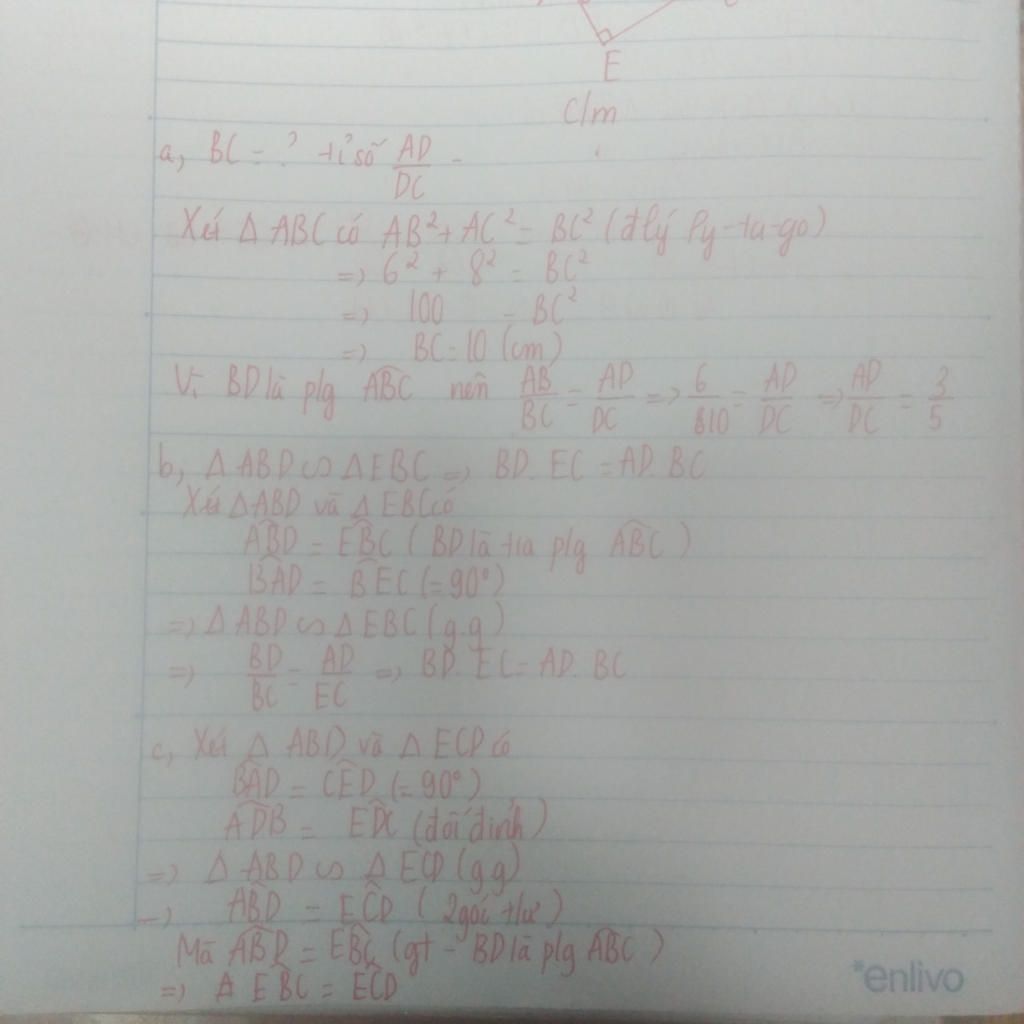 E
C/m
a, BC = ? tỉ số AD/DC
Xét Δ ABC có AB² + AC² = BC² (đ lý Py-ta-go)
=> 6² + 8² = BC²
=> 100 = BC²
=> BC = 10 (cm)
Vì BD là p/g ABC nên AB/BC = AD/DC => 6/10 = AD/DC => AD/DC = 3/5
b, Δ ABD ∽ Δ EBC => BD. EC = AD. BC
Xét Δ ABD và Δ EBC có
ABD = EBC ( BD là tia p/g ABC )
BAD = BEC (= 90°)
=> Δ ABD ∽ Δ EBC (g.g)
=> BD/BC = AD/EC => BD. EC = AD. BC
c, Xét Δ ABD và Δ ECD có
BAD = CED (= 90°)
ADB = EDC (đối đỉnh)
=> Δ ABD ∽ Δ ECD (g g)
=> ABD = ECD ( 2 góc t/ư )
Mà ABD = EBC (gt - BD là p/g ABC )
=> Δ EBC = ECD
enlivo